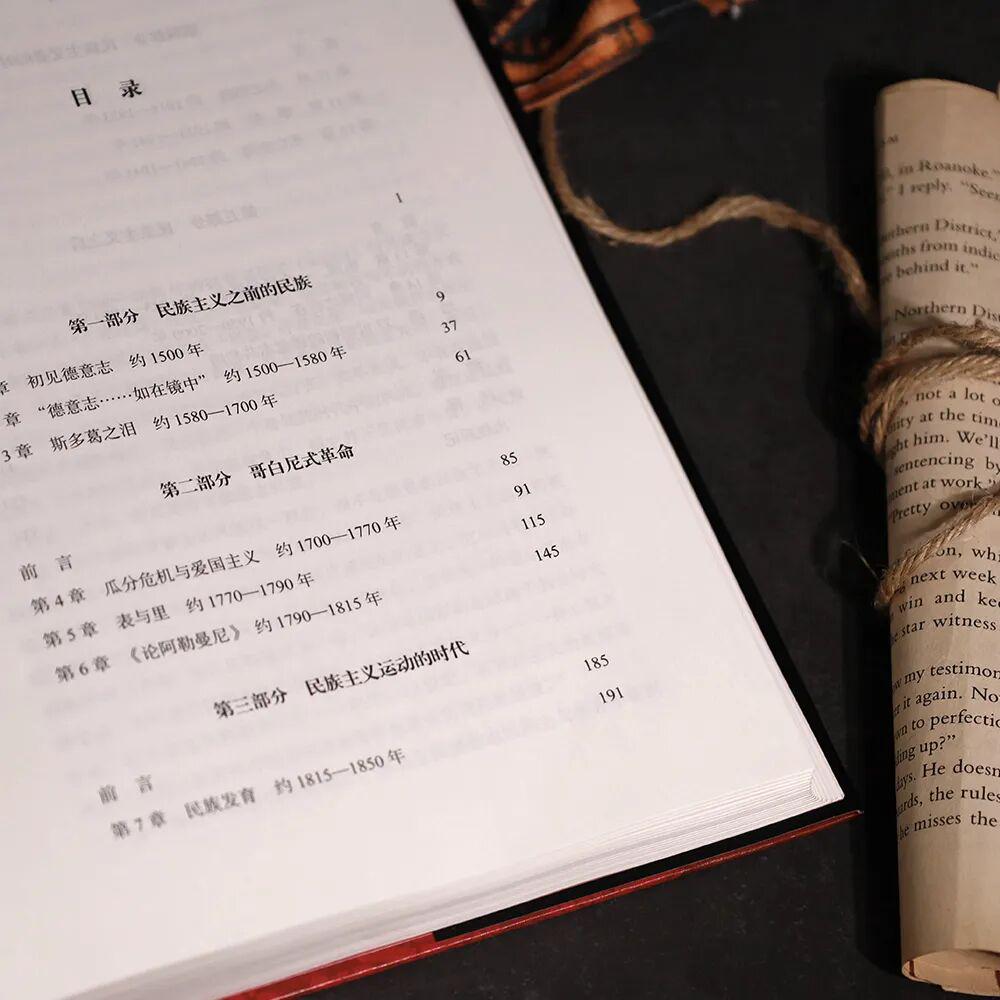 目 录
1
第一部分 民族主义之前的民族
章 初见德意志 约1500年 9
章 “德意志……如在镜中” 约1500—1580年 37
3章 斯多葛之泪 约1580—1700年 61
第二部分 哥白尼式革命
前 言 85
第4章 瓜分危机与爱国主义 约1700—1770年 91
第5章 表与里 约1770—1790年 115
第6章 《论阿勒曼尼》 约1790—1815年 145
第三部分 民族主义运动的时代
前 言 185
第7章 民族发育 约1815—1850年 191
in Roanoke.”
” I reply. “Seen
thern District,
from indic
behind it.”
Northern Dist
not a lot o
at the time
him. We’ll
sentencing by
at work.”
Pretty over
on, whi
next week
win and kee
star witness
my testimon
it again. No
to perfectio
up?”
days. He doesn
the rules
he misses the